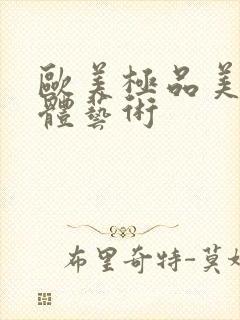 歐美極品美
體藝術
布里奇特-莫